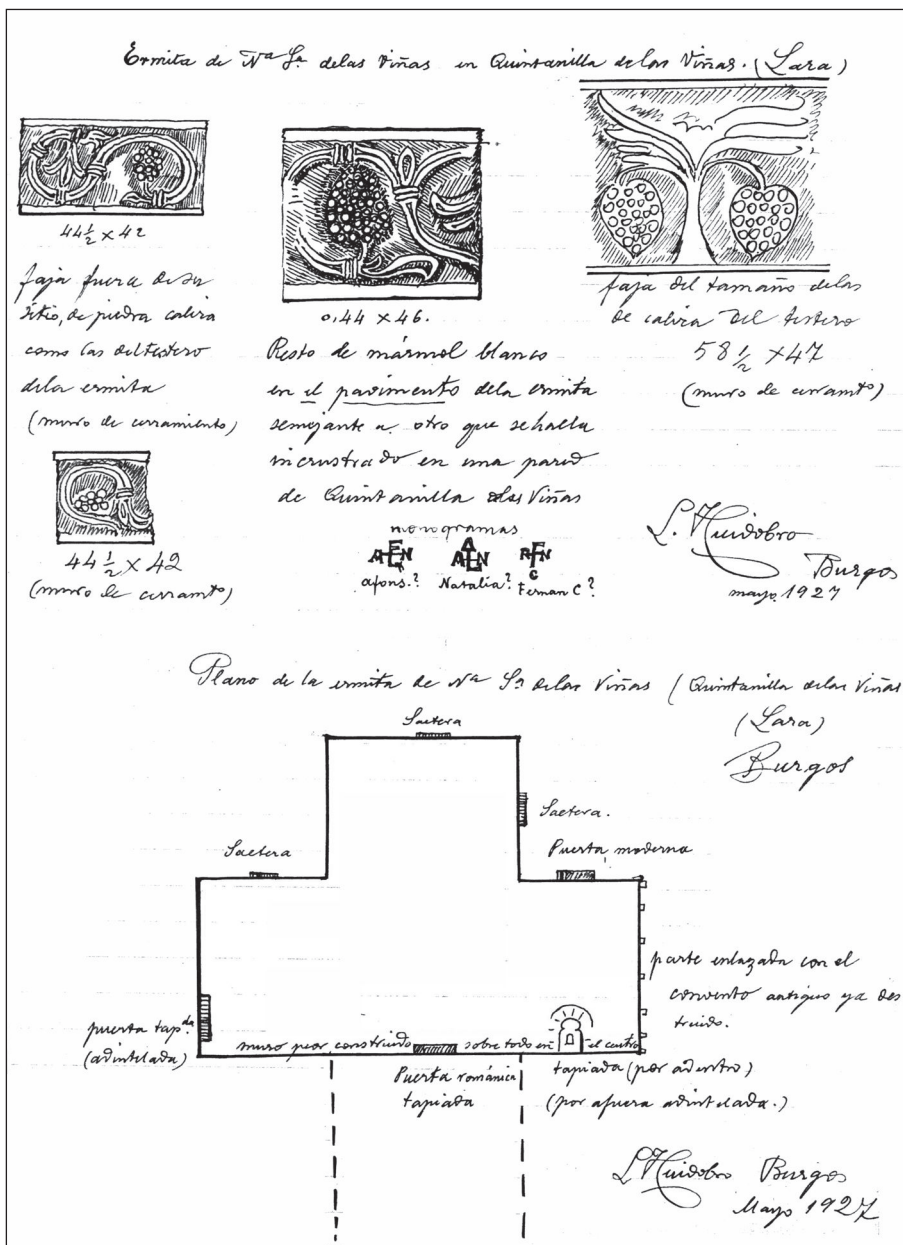 Ermita de Nª Sª. de las Viñas en Quintanilla de las Viñas. (Lara)
44 1/2 x 42
faja fuera de su
sitio, de piedra caliza
como las del testero
de la ermita
(muro de cerramiento)
44 1/2 x 42
(muro de cerramto)
0,44 x 46.
Resto de mármol blanco
en el pavimento de la ermita
semejante a otro que se halla
incrustrado en una pared
de Quintanilla de las Viñas
faja del tamaño de las
de caliza del testero
58 1/2 x 47
(muro de cerramto)
monogramas
afons.? Natalia? Fernan C?
L. Huidobro
Burgos
mayo 1927
Plano de la ermita de Nª Sª de las Viñas (Quintanilla de las Viñas
(Lara)
Burgos
Saetera
Saetera.
Saetera
Puerta moderna
parte enlazada con el
convento antiguo ya des
truido.
puerta tapda
(adintelada)
muro peor construido sobre todo en el centro
Puerta románica
tapiada
tapiada (por adentro)
(por afuera adintelada.)
L Huidobro Burgos
Mayo 1927